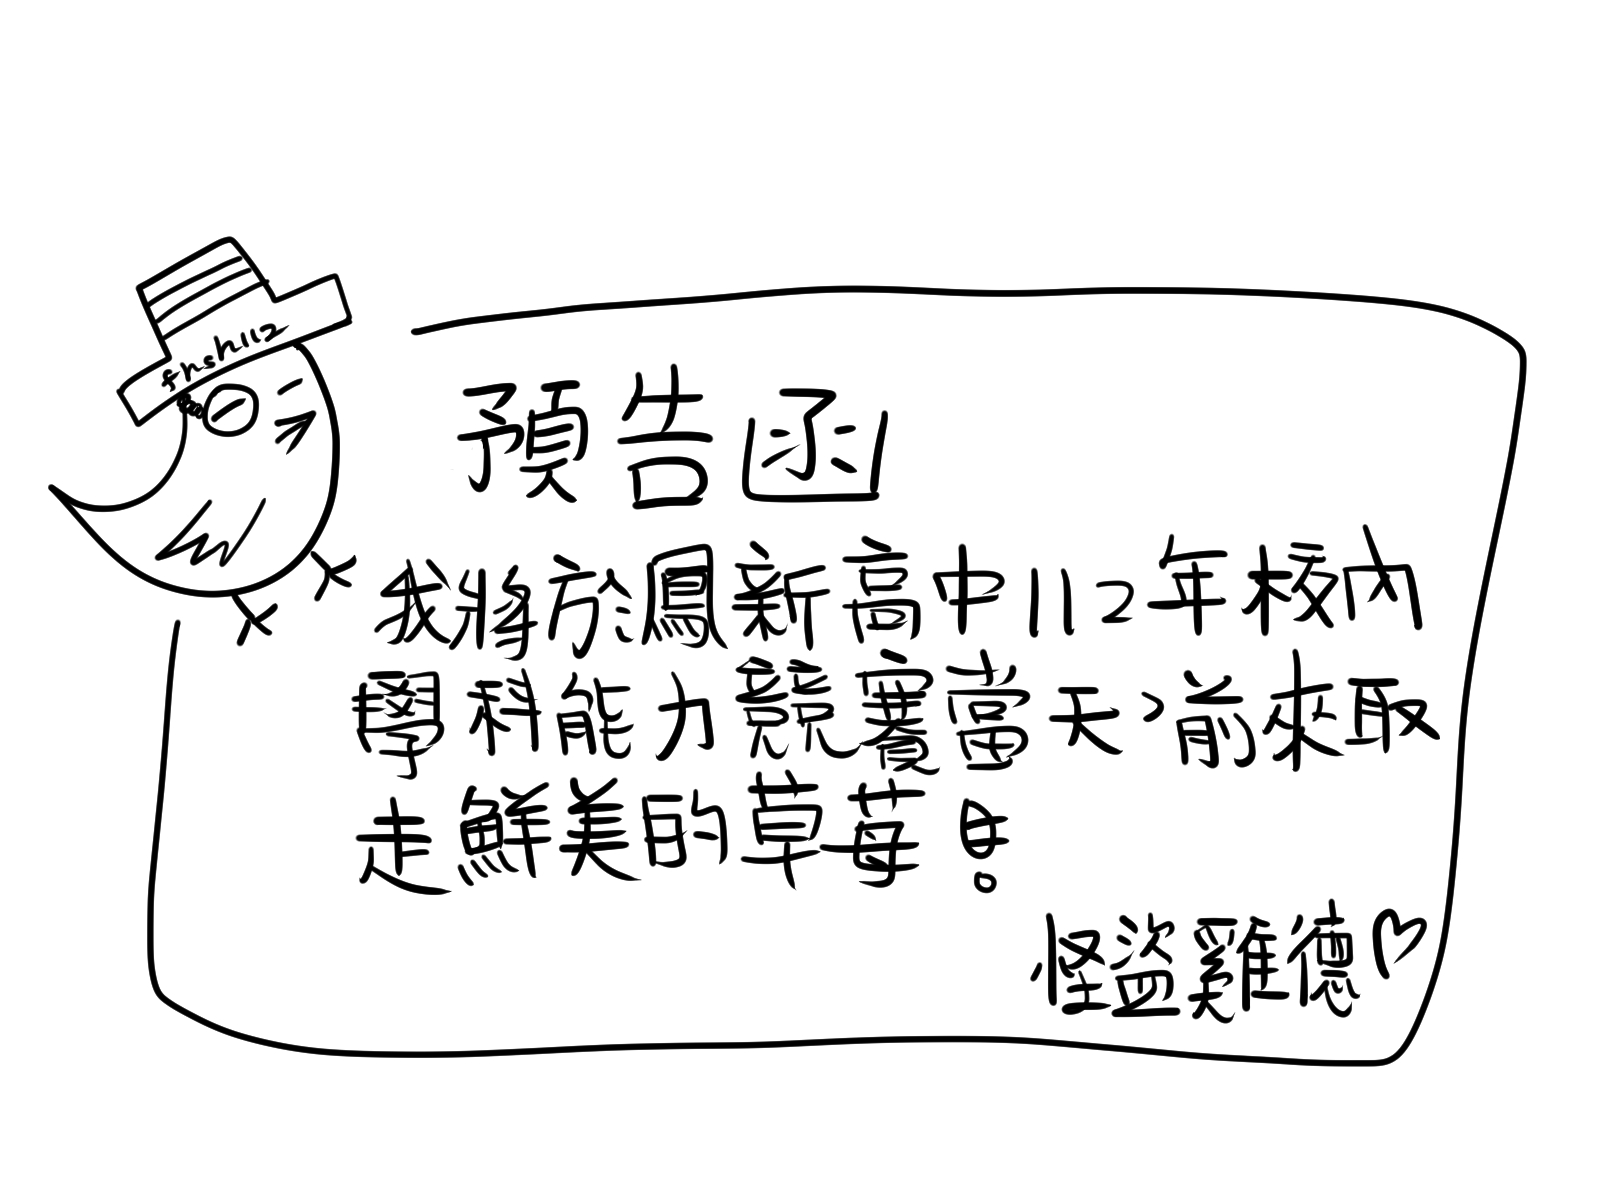 fhsh112
預告函
我將於鳳新高中112年校內
學科能力競賽當天，前來取
走鮮美的草莓！
怪盜雞德♡